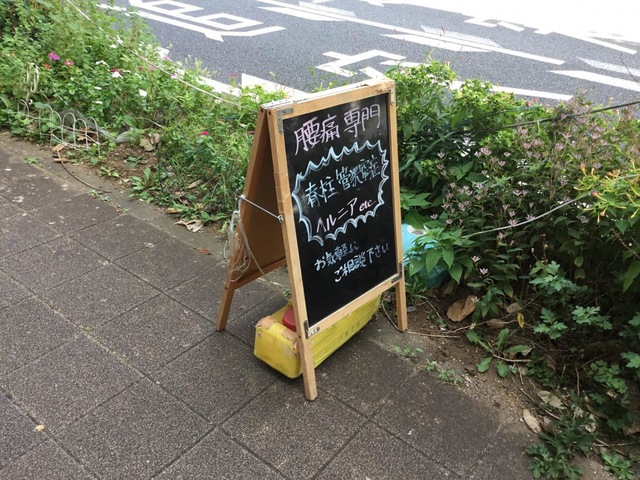 腰痛専門
脊柱管狭窄症
ヘルニア etc
お気軽に
ご相談下さい